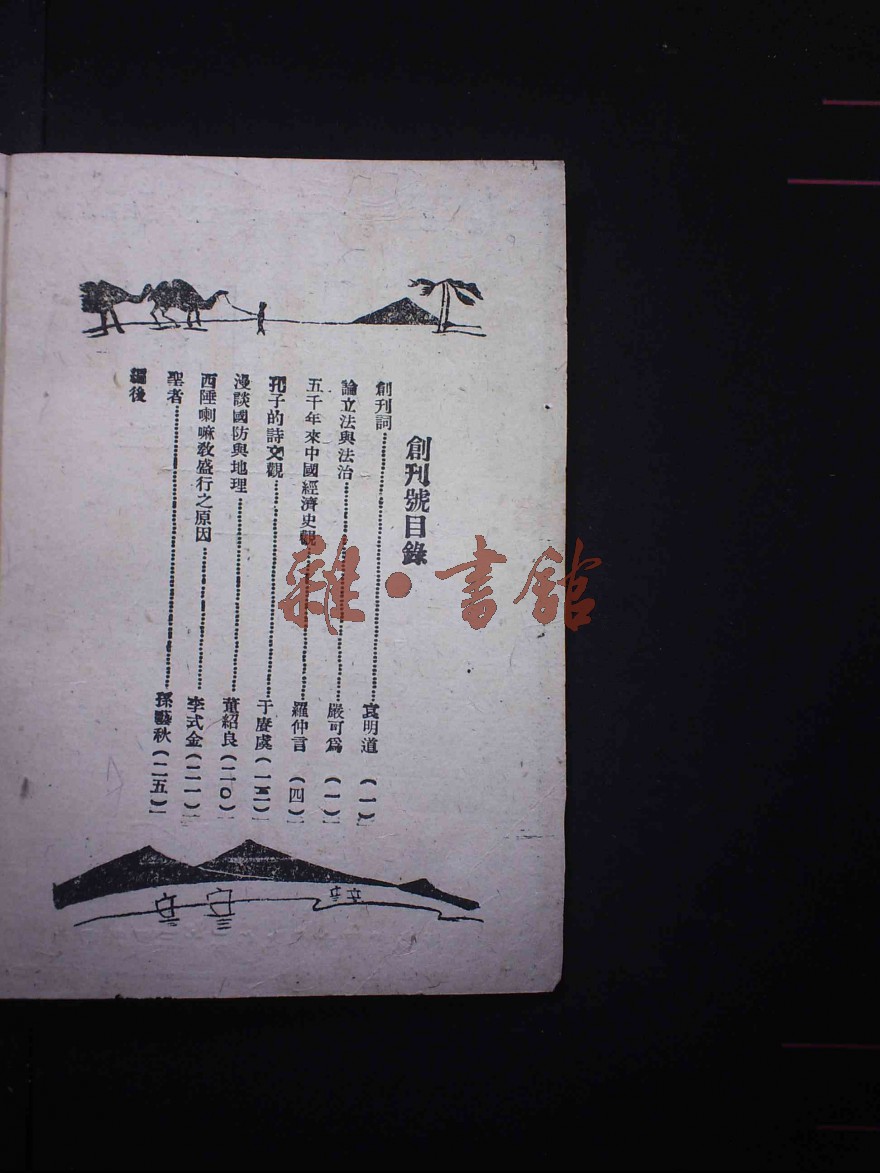 創刊號目錄
創刊詞 袁明道 (一)
論立法與法治 嚴可爲 (一)
五千年來中國經濟史觀 羅仲言 (四)
孔子的詩文觀 于賡虞 (一二)
漫談國防與地理 董紹良 (二〇)
西陲喇嘛敎盛行之原因 李式金 (二一)
聖者 孫藝秋 (二五)
編後
雜·書館